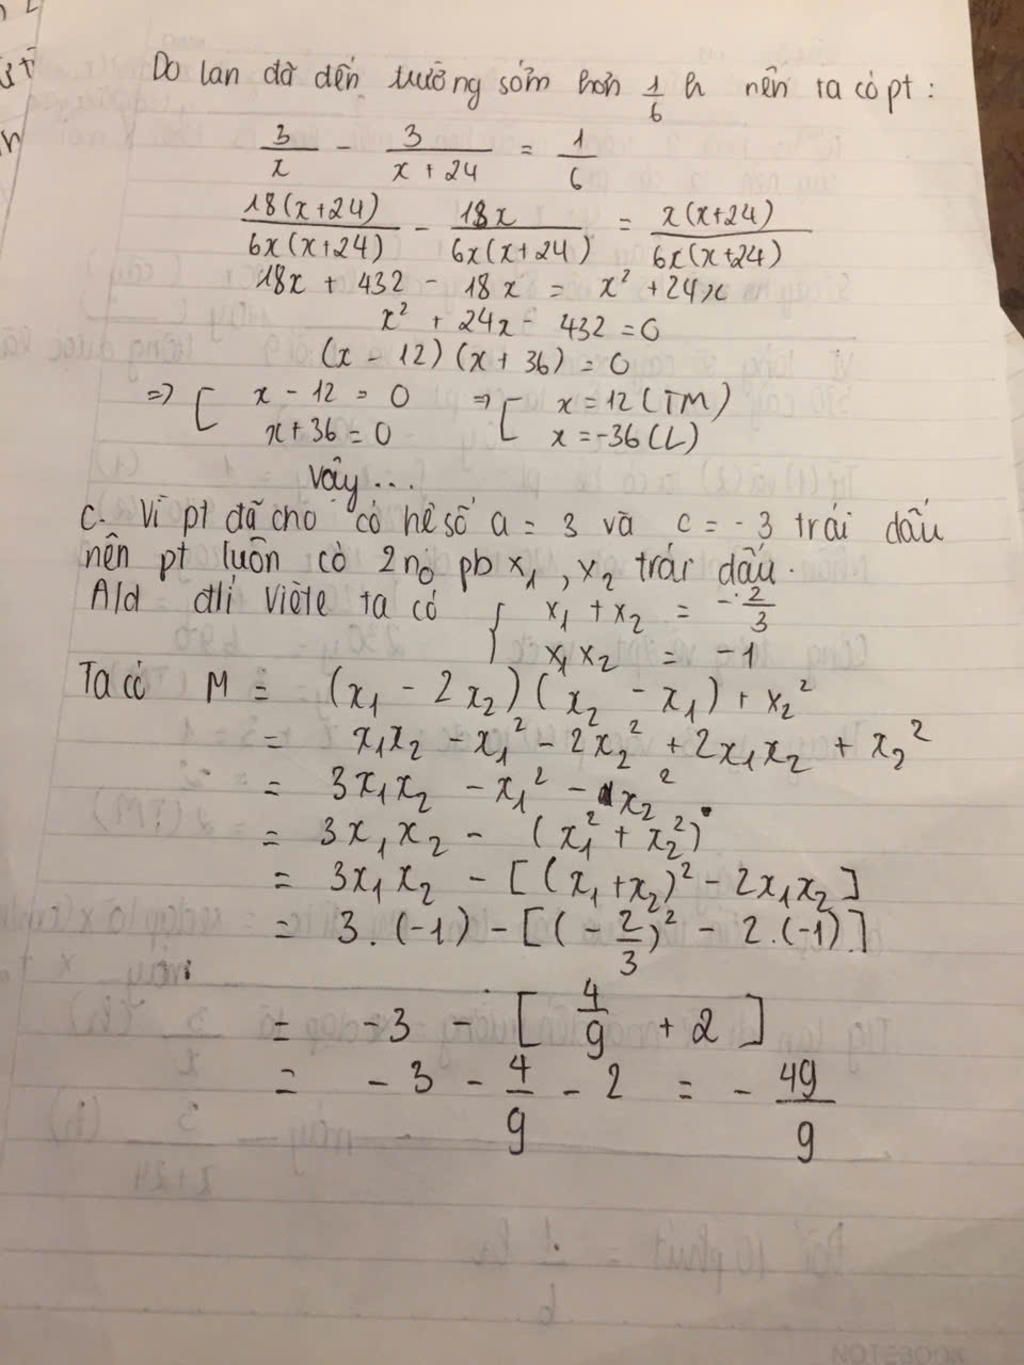 Do lan đã đến trường sớm hơn 1/6 h nên ta có pt :
3/x - 3/(x + 24) = 1/6
18(x+24)/6x(x+24) - 18x/6x(x+24) = x(x+24)/6x(x+24)
18x + 432 - 18x = x² + 24x
x² + 24x - 432 = 0
(x - 12) (x + 36) = 0
=> [ x - 12 = 0 => [ x = 12 (TM)
x + 36 = 0 x = -36 (L)
Vậy ...
c. Vì pt đã cho có hệ số a = 3 và c = - 3 trái dấu
nên pt luôn có 2 n₀ pb x₁ , x₂ trái dấu .
A/d đlí Viète ta có { x₁ + x₂ = - 2/3
x₁x₂ = -1
Ta có M = (x₁ - 2x₂) (x₂ - x₁) + x₂²
= x₁x₂ - x₁² - 2x₂² + 2x₁x₂ + x₂²
= 3x₁x₂ - x₁² - x₂²
= 3x₁x₂ - (x₁² + x₂²)
= 3x₁x₂ - [(x₁+x₂)² - 2x₁x₂]
= 3. (-1) - [(- 2/3)² - 2.(-1)]
= -3 - [ 4/9 + 2 ]
= - 3 - 4/9 - 2 = - 49/9